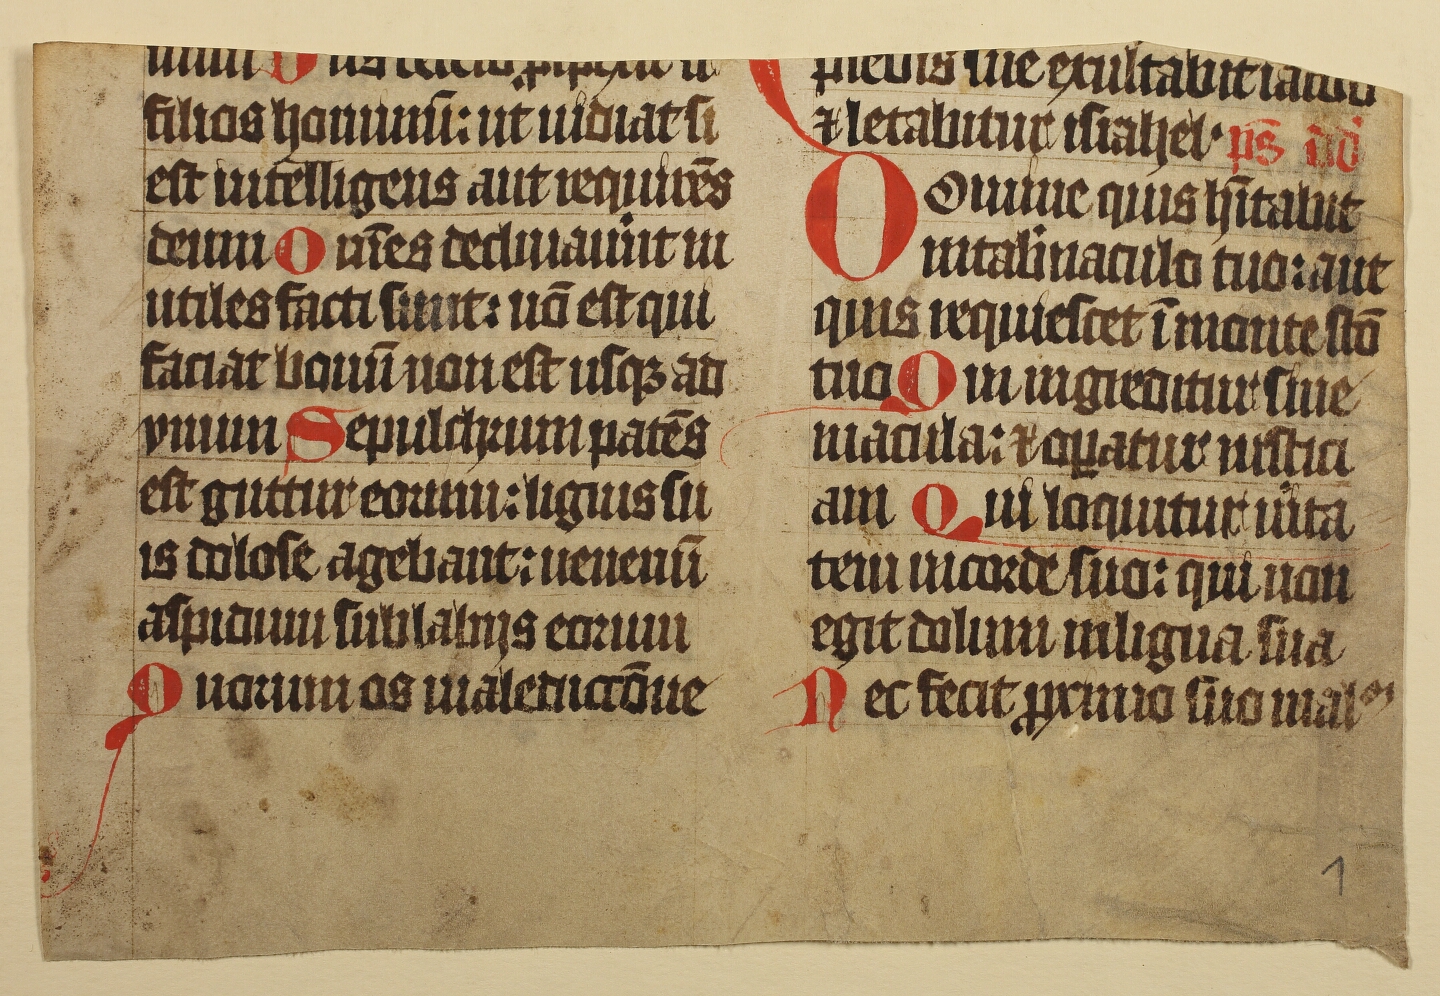 mini Dns de celo ꝓspexit su
filios hominū: ut uideat si
est intelligens aut requirēs
deum Omēs declinauerūt in
utiles facti sunt: nō est qui
faciat bonū non est usqꝫ ad
vnum Sepulchrum patēs
est guttur eorum: liguis su
is dolose agebant: uenenū
aspidum sub labijs eorum
Quorum os maledictōne
plebis sue exultabit iacob
⁊ letabitur israhel· ps̄ dd̄
Domine quis hītabit
in tabnaculo tuo: aut
quis requiescet ī monte scō
tuo Qui ingreditur sine
macula: ⁊ oꝑatur iustici
am Qui loquitur uīta
tem in corde suo: qui non
egit dolum in ligua sua
Nec fecit ꝓximo suo mal
1